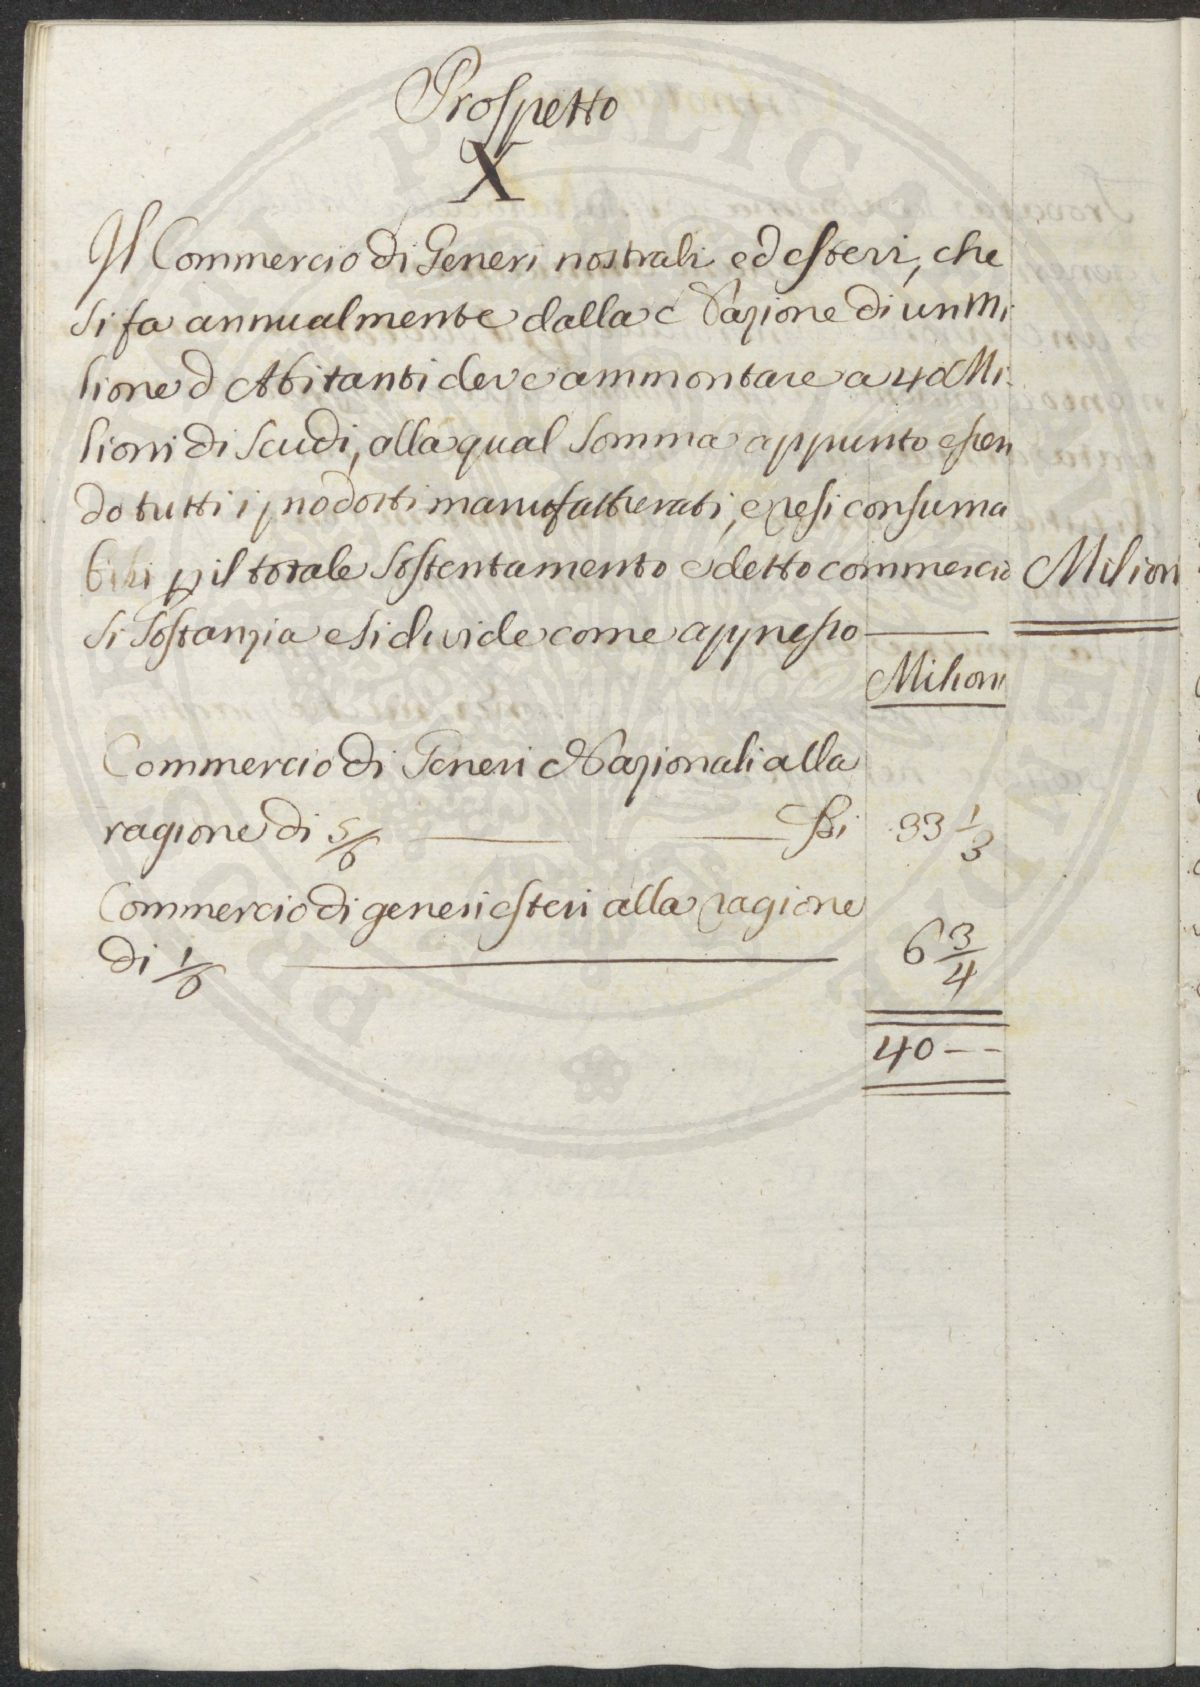 Prospetto
X
Il Commercio di Generi nostrali ed esteri, che
si fa annualmente dalla Nazione di un Mi
lione d Abitanti deve ammontare a 40 Mi-
lioni di scudi, alla qual somma appunto essen
do tutti i prodotti manufatturati, e resi consuma
bili p il totale sostentamento e detto commercio
Milion
si sostanzia e si divide come appresso
Milioni
Commercio di Generi Nazionali alla
ragione di 5/6 — — 33 1/3
Commercio di generi esteri alla ragione
di 1/6 — 6 3/4
40 — —